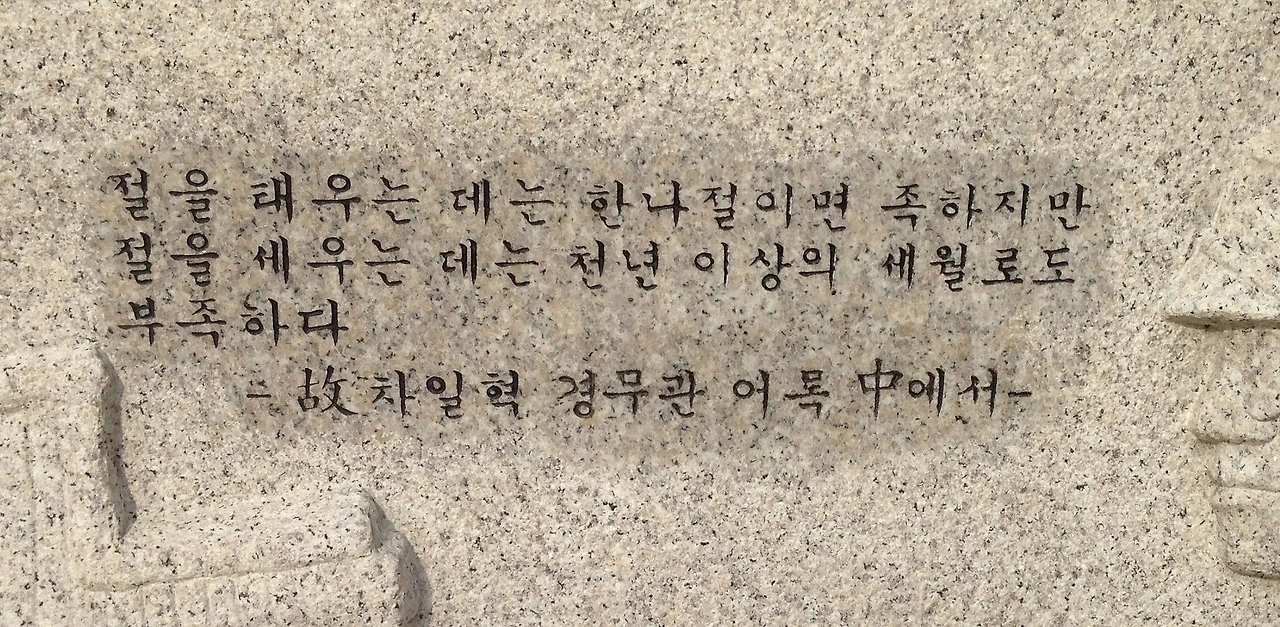 절을 태우는 데는 한나절이면 족하지만
절을 세우는 데는 천년 이상의 세월로도
부족하다
- 故차일혁 경무관 어록 中에서-